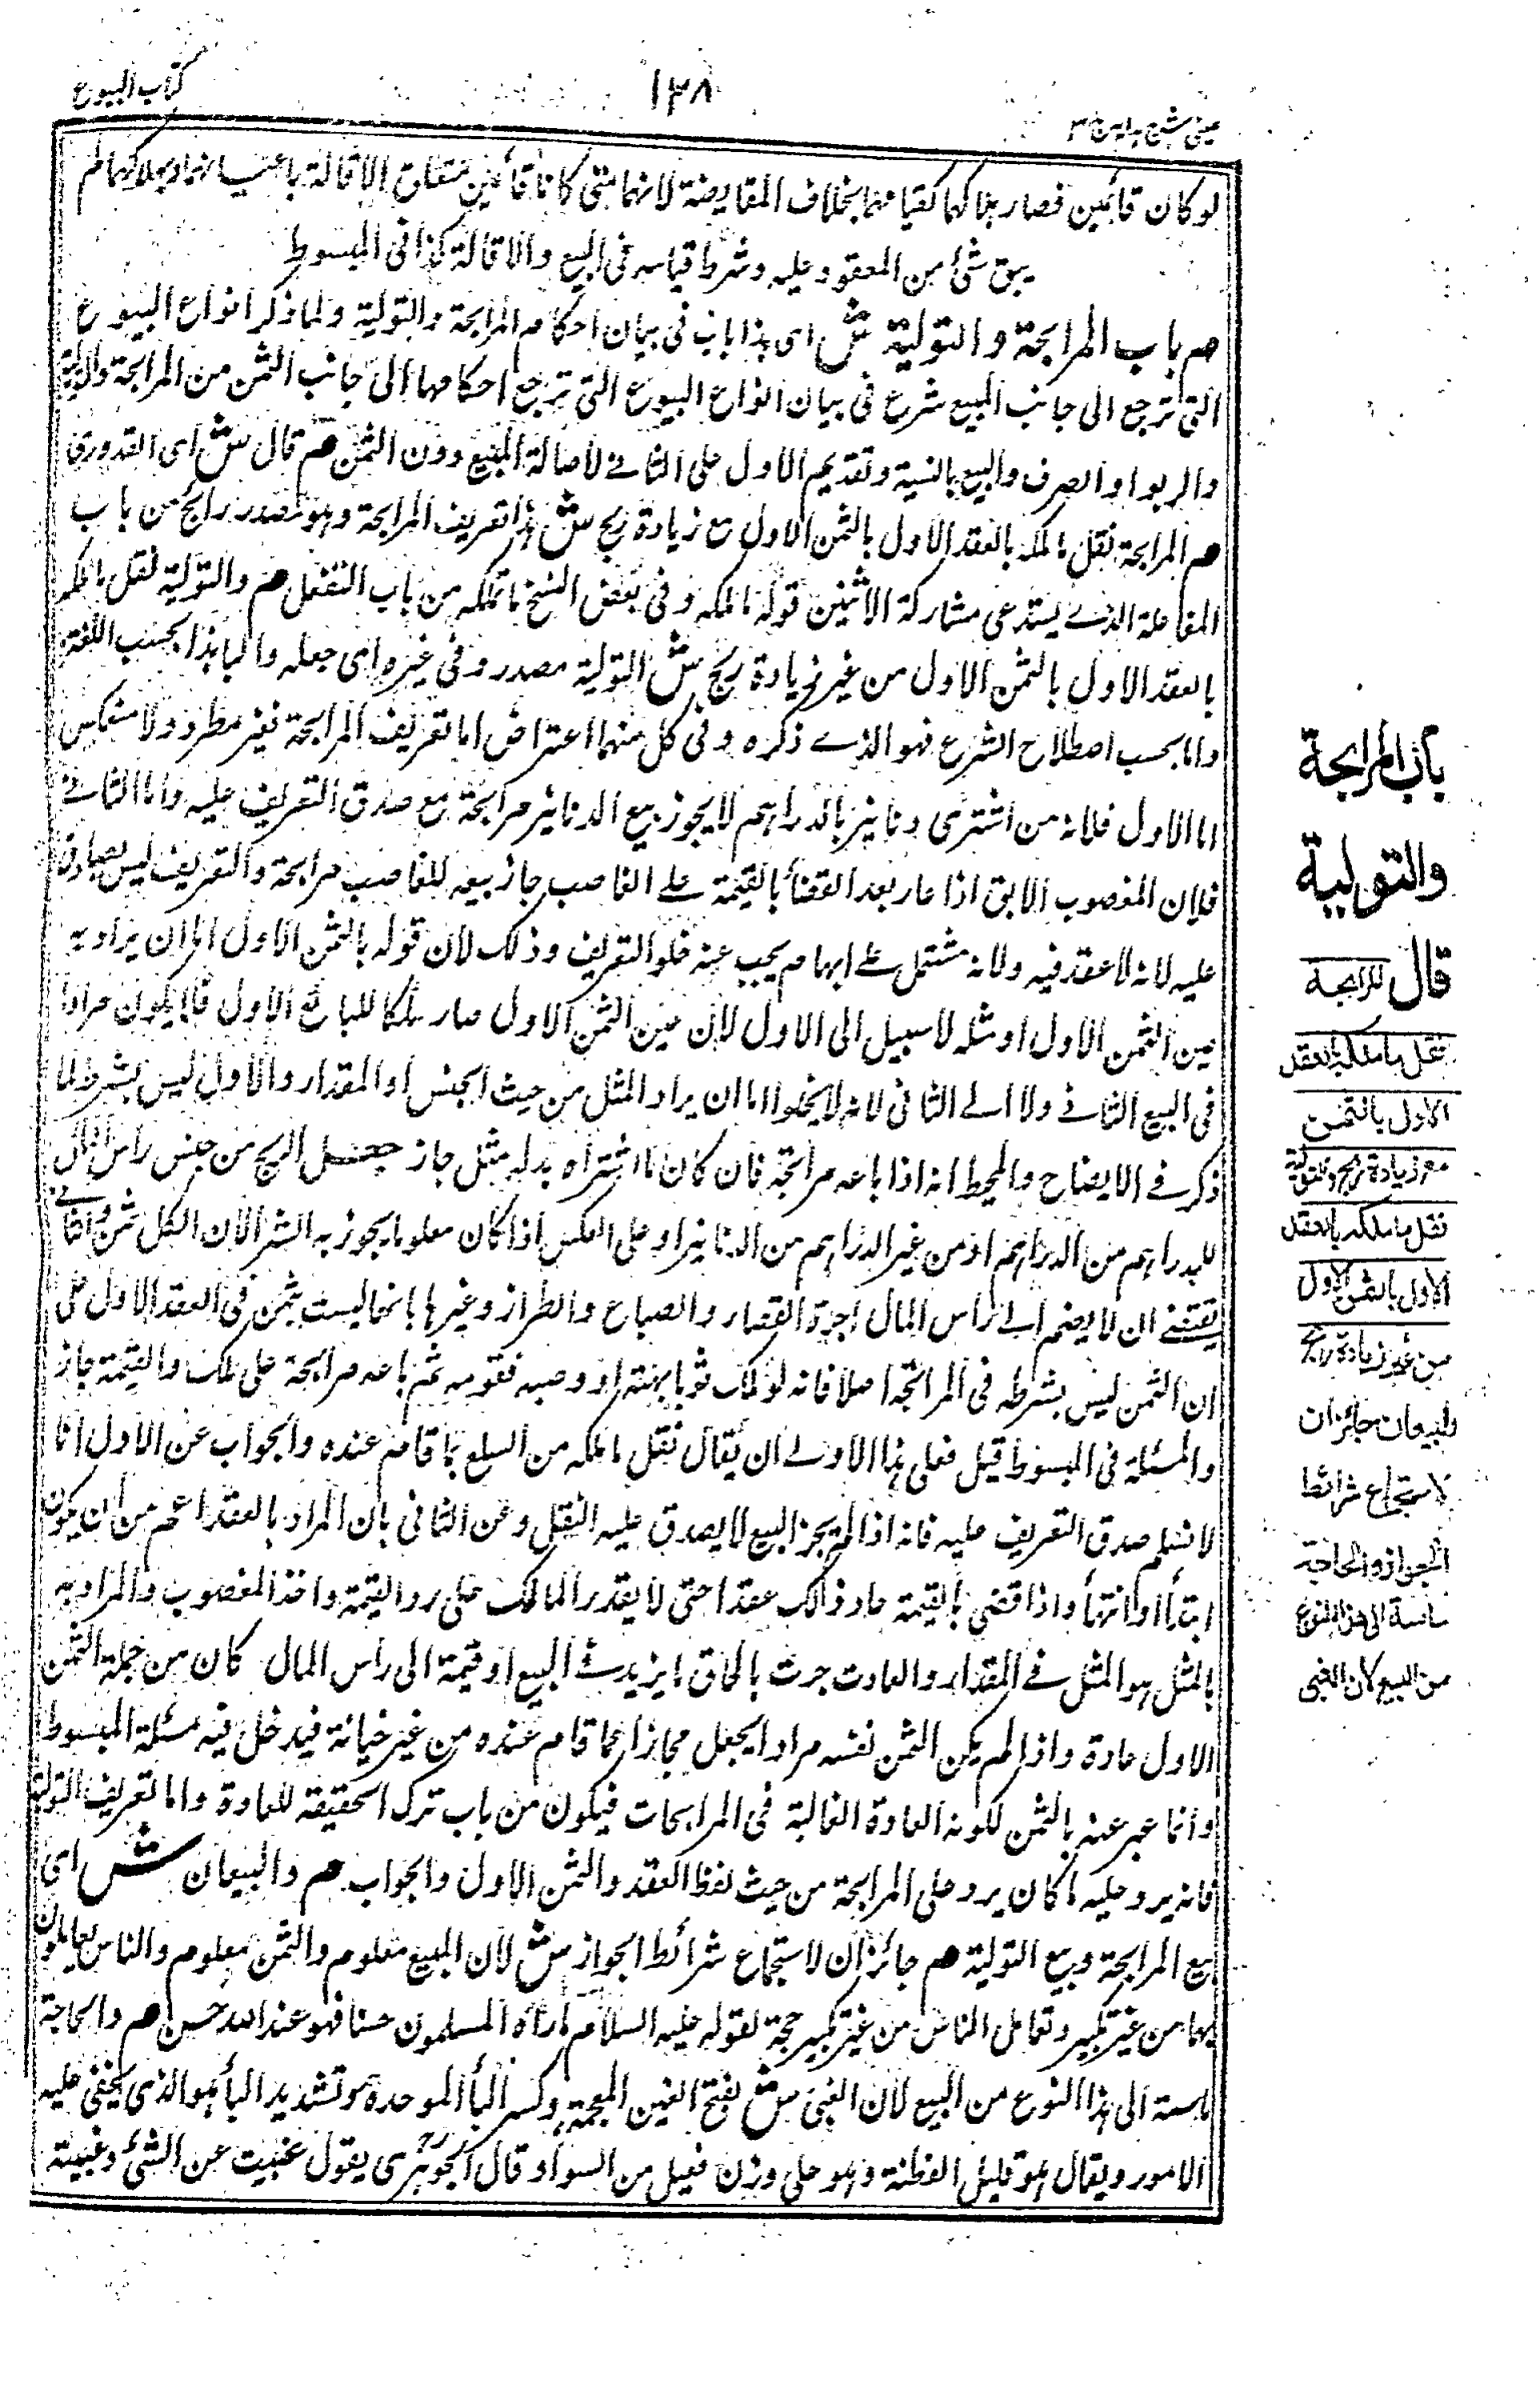 عینی شرح ہدایہ ج ۳
۱۲۸
كتاب البيوع
لو كان قائمين فصار هلاكهما كقيامهما بخلاف المقايضة لانهما متى كانا قائمين تتقاع الاقالة باعتبارهما وبهلاكهما لم
يبق شئ من المعقود عليه وشرط قيامه فى البيع والاقالة كذا فى المبسوط
م باب المرابحة والتولية ش اى هذا باب فى بيان احكام المرابحة والتولية ولما ذكر انواع البيوع
التى ترجع الى جانب المبيع شرع فى بيان انواع البيوع التى ترجع احكامها الى جانب الثمن من المرابحة والتولية
والربوا والصرف والبيع بالنسية وتقديم الاول على الثانے لاصالة المبيع دون الثمن م قال ش اى القدورى
م المرابحة نقل ما ملكه بالعقد الاول بالثمن الاول مع زيادة ربح ش هذا تعريف المرابحة وهو مصدر رابح من باب
المفاعلة الذے يستدعى مشاركة الاثنين قوله ما ملكه وفى بعض النسخ ما تملكه من باب التفعل م والتولية نقل ما ملكه
بالعقد الاول بالثمن الاول من غير زيادة ربح ش التولية مصدر وفى غيره اى جعله واليا هذا بحسب اللغة
واما بحسب اصطلاح الشرع فهو الذے ذكره وفى كل منهما اعتراض اما تعريف المرابحة فغير مطرد ولا منعكس
اما الاول فلانه من اشترى دنانير بالدراهم لا يجوز بيع الدنانير مرابحة مع صدق التعريف عليه واما الثانے
فلان المغصوب الابق اذا عار بعد القضأ بالقيمة علے الغاصب جاز بيعه للغاصب مرابحة والتعريف ليس بصادق
عليه لانه لا عقد فيه ولانه مشتمل علے ابهام يجب عنه خلو التعريف وذلك لان قوله بالثمن الاول اما ان يراد به
عين الثمن الاول او مثله لا سبيل الى الاول لان عين الثمن الاول صار ملكا للبائع الاول فلا يكون مرادا
فى البيع الثانے ولا الے الثانى لانه لا يخلوا اما ان يراد المثل من حيث الجنس او المقدار والاول ليس بشرط لما
ذكر فے الايضاح والمحيط انه اذا باعه مرابحة فان كان ما اشتراه بدله مثل جاز جعل الربح من جنس راس المال
للدراهم من الدراهم او من غير الدراهم من الدنانير او على العكس اذا كان معلوما يجوز به الشر الان الكل ثمن والثانے
يقتضے ان لا يضم الے راس المال اجرة القصار والصباغ والطراز وغيرها بانها ليست بثمن فى العقد الاول على
ان الثمن ليس بشرطه فى المرابحة اصلا فانه لو ملك ثوبا بهبة او وصيه فقومه ثم باعه مرابحة على ملك والقيمة جاز
والمسئلة فى المبسوط قيل فعلى هذا الاولے ان يقال نقل ما ملكه من السلع بما قام عنده والجواب عن الاول انا
لا نسلم صدق التعريف عليه فانه اذا لم يجز البيع لا يصدق عليه النقل وعن الثانى بان المراد بالعقد اعم من ان يكون
ابتدأ او انتهأ واذا قضى بالقيمة عاد ذالك عقدا حتى لا يقدر المالك على رد القيمة واخذ المغصوب والمراد به
بالمثل هو المثل فے المقدار والعادت جرت بالحاق ما يزيد فے المبيع او قيمة الى راس المال كان من جملة الثمن
الاول عادة واذا لم يكن الثمن نفسه مرادا يجعل مجازا عما قام عنده من غير خيانة فيدخل فيه مسئلة المبسوط
وانما عبر عنه بالثمن لكونه العادة الغالبة فى المرابحات فيكون من باب ترك الحقيقة للعادة واما تعريف التولية
فانه يرد عليه ما كان يرد على المرابحة من حيث لفظ العقد والثمن الاول والجواب م والبيعان ش اى
بيع المرابحة وبيع التولية م جائزان لاستجماع شرائط الجواز ش لان المبيع معلوم والثمن معلوم والناس يعاملون
بهما من غير نكير وتعامل الناس من غير نكير حجة لقوله عليه السلام ما رأه المسلمون حسنا فهو عند الله حسن م والحاجة
ماسة الى هذا النوع من البيع لان الغبى ش بفتح الغين المعجمة وكسر البأ الموحدة وتشديد اليأ هو الذى يخفى عليه
الامور ويقال هو قليل الفطنة وهو على وزن فعيل من السوأ وقال الجوهرى يقول غبيت عن الشئ وغبيته
باب المرابحة
والتولية
قال المرابحة
نقل ما ملكه بالعقد
الاول بالثمن
مع زيادة ربح والتولية
نقل ما ملكه بالعقد
الاول بالثمن الاول
من غير زيادة ربح
والبيعان جائزان
لاستجماع شرائط
الجواز والحاجة
ماسة الى هذا النوع
من البيع لان الغبى